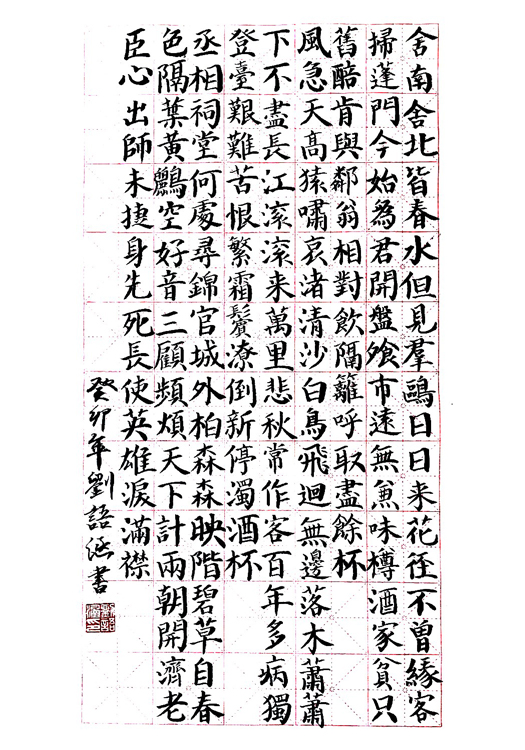 舍南舍北皆春水但見羣鷗日日来花徑不曾緣客
掃蓬門今始為君開盤飧市遠無兼味樽酒家貧只
舊醅肯與鄰翁相對飲隔籬呼取盡餘杯
風急天高猿嘯哀渚清沙白鳥飛迴無邊落木蕭蕭
下不盡長江滚滚来萬里悲秋常作客百年多病獨
登臺艱難苦恨繁霜鬢潦倒新停濁酒杯
丞相祠堂何處尋錦官城外柏森森映階碧草自春
色隔葉黃鸝空好音三顧頻煩天下計兩朝開濟老
臣心出師未捷身先死長使英雄淚滿襟
癸卯年劉語涵書